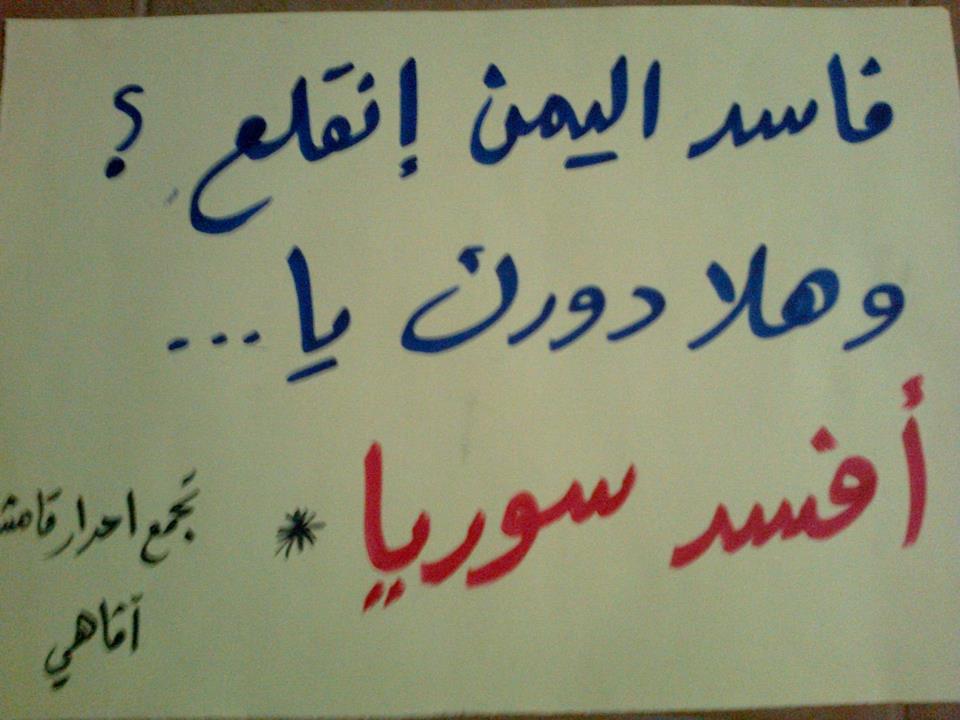 فاسد اليمن إنقلع ؟
وهلا دورن يا...
أفسد سوريا *
تجمع احرار قامشـ
آفاهي